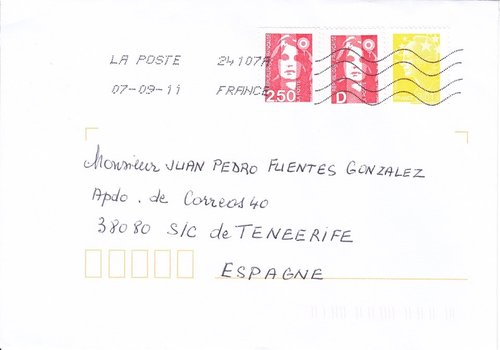 LA POSTE 24107A
07-09-11 FRANCE
2.50 D
Monsieur JUAN PEDRO FUENTES GONZALEZ
Apdo. de Correos 40
38080 S/C de TENEERIFE
ESPAGNE